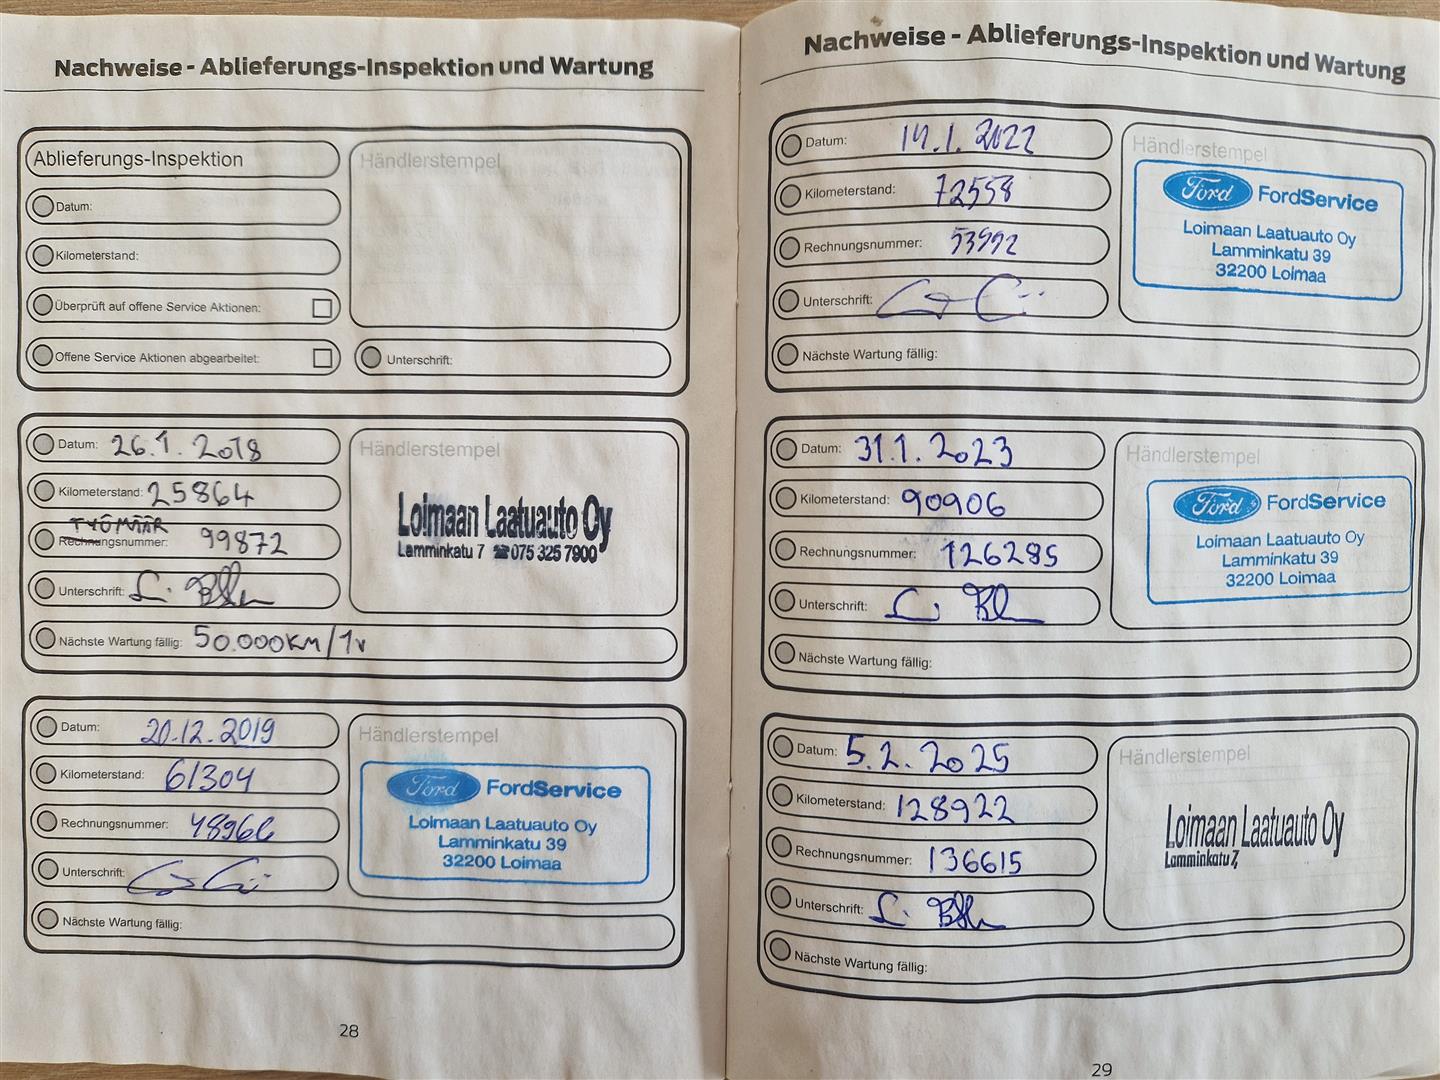 Nachweise - Ablieferungs-Inspektion und Wartung
Ablieferungs-Inspektion
Händlerstempel
Datum:
Kilometerstand:
Überprüft auf offene Service Aktionen:
Offene Service Aktionen abgearbeitet:
Unterschrift:
Datum: 26.1.2018
Händlerstempel
Kilometerstand: 25864
TYÖMÄÄR
Rechnungsnummer: 99872
Loimaan Laatuauto Oy
Lamminkatu 7 ☎075 325 7900
Unterschrift:
Nächste Wartung fällig: 50.000KM/1v
Datum: 20.12.2019
Händlerstempel
Kilometerstand: 61304
Rechnungsnummer: 48966
Ford FordService
Loimaan Laatuauto Oy
Lamminkatu 39
32200 Loimaa
Unterschrift:
Nächste Wartung fällig:
28
Nachweise - Ablieferungs-Inspektion und Wartung
Datum: 14.1.2022
Händlerstempel
Kilometerstand: 72558
Rechnungsnummer: 53992
Ford FordService
Loimaan Laatuauto Oy
Lamminkatu 39
32200 Loimaa
Unterschrift:
Nächste Wartung fällig:
Datum: 31.1.2023
Händlerstempel
Kilometerstand: 90906
Rechnungsnummer: 126285
Ford FordService
Loimaan Laatuauto Oy
Lamminkatu 39
32200 Loimaa
Unterschrift:
Nächste Wartung fällig:
Datum: 5.2.2025
Händlerstempel
Kilometerstand: 128922
Rechnungsnummer: 136615
Loimaan Laatuauto Oy
Lamminkatu 7,
Unterschrift:
Nächste Wartung fällig:
29